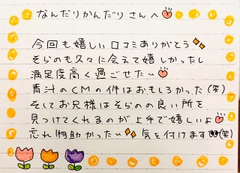 なんだりかんだりさんへ
今回も嬉しい口コミありがとう
そらのも久々に会えて嬉しかったし
満足度高く過ごせたい
青汁のCMの件はおもしろかった(笑)
そしてお兄様はそらのの良い所を
見つけてくれるのが上手で嬉しいよ
忘れ物助かったい 気を付けます(笑)